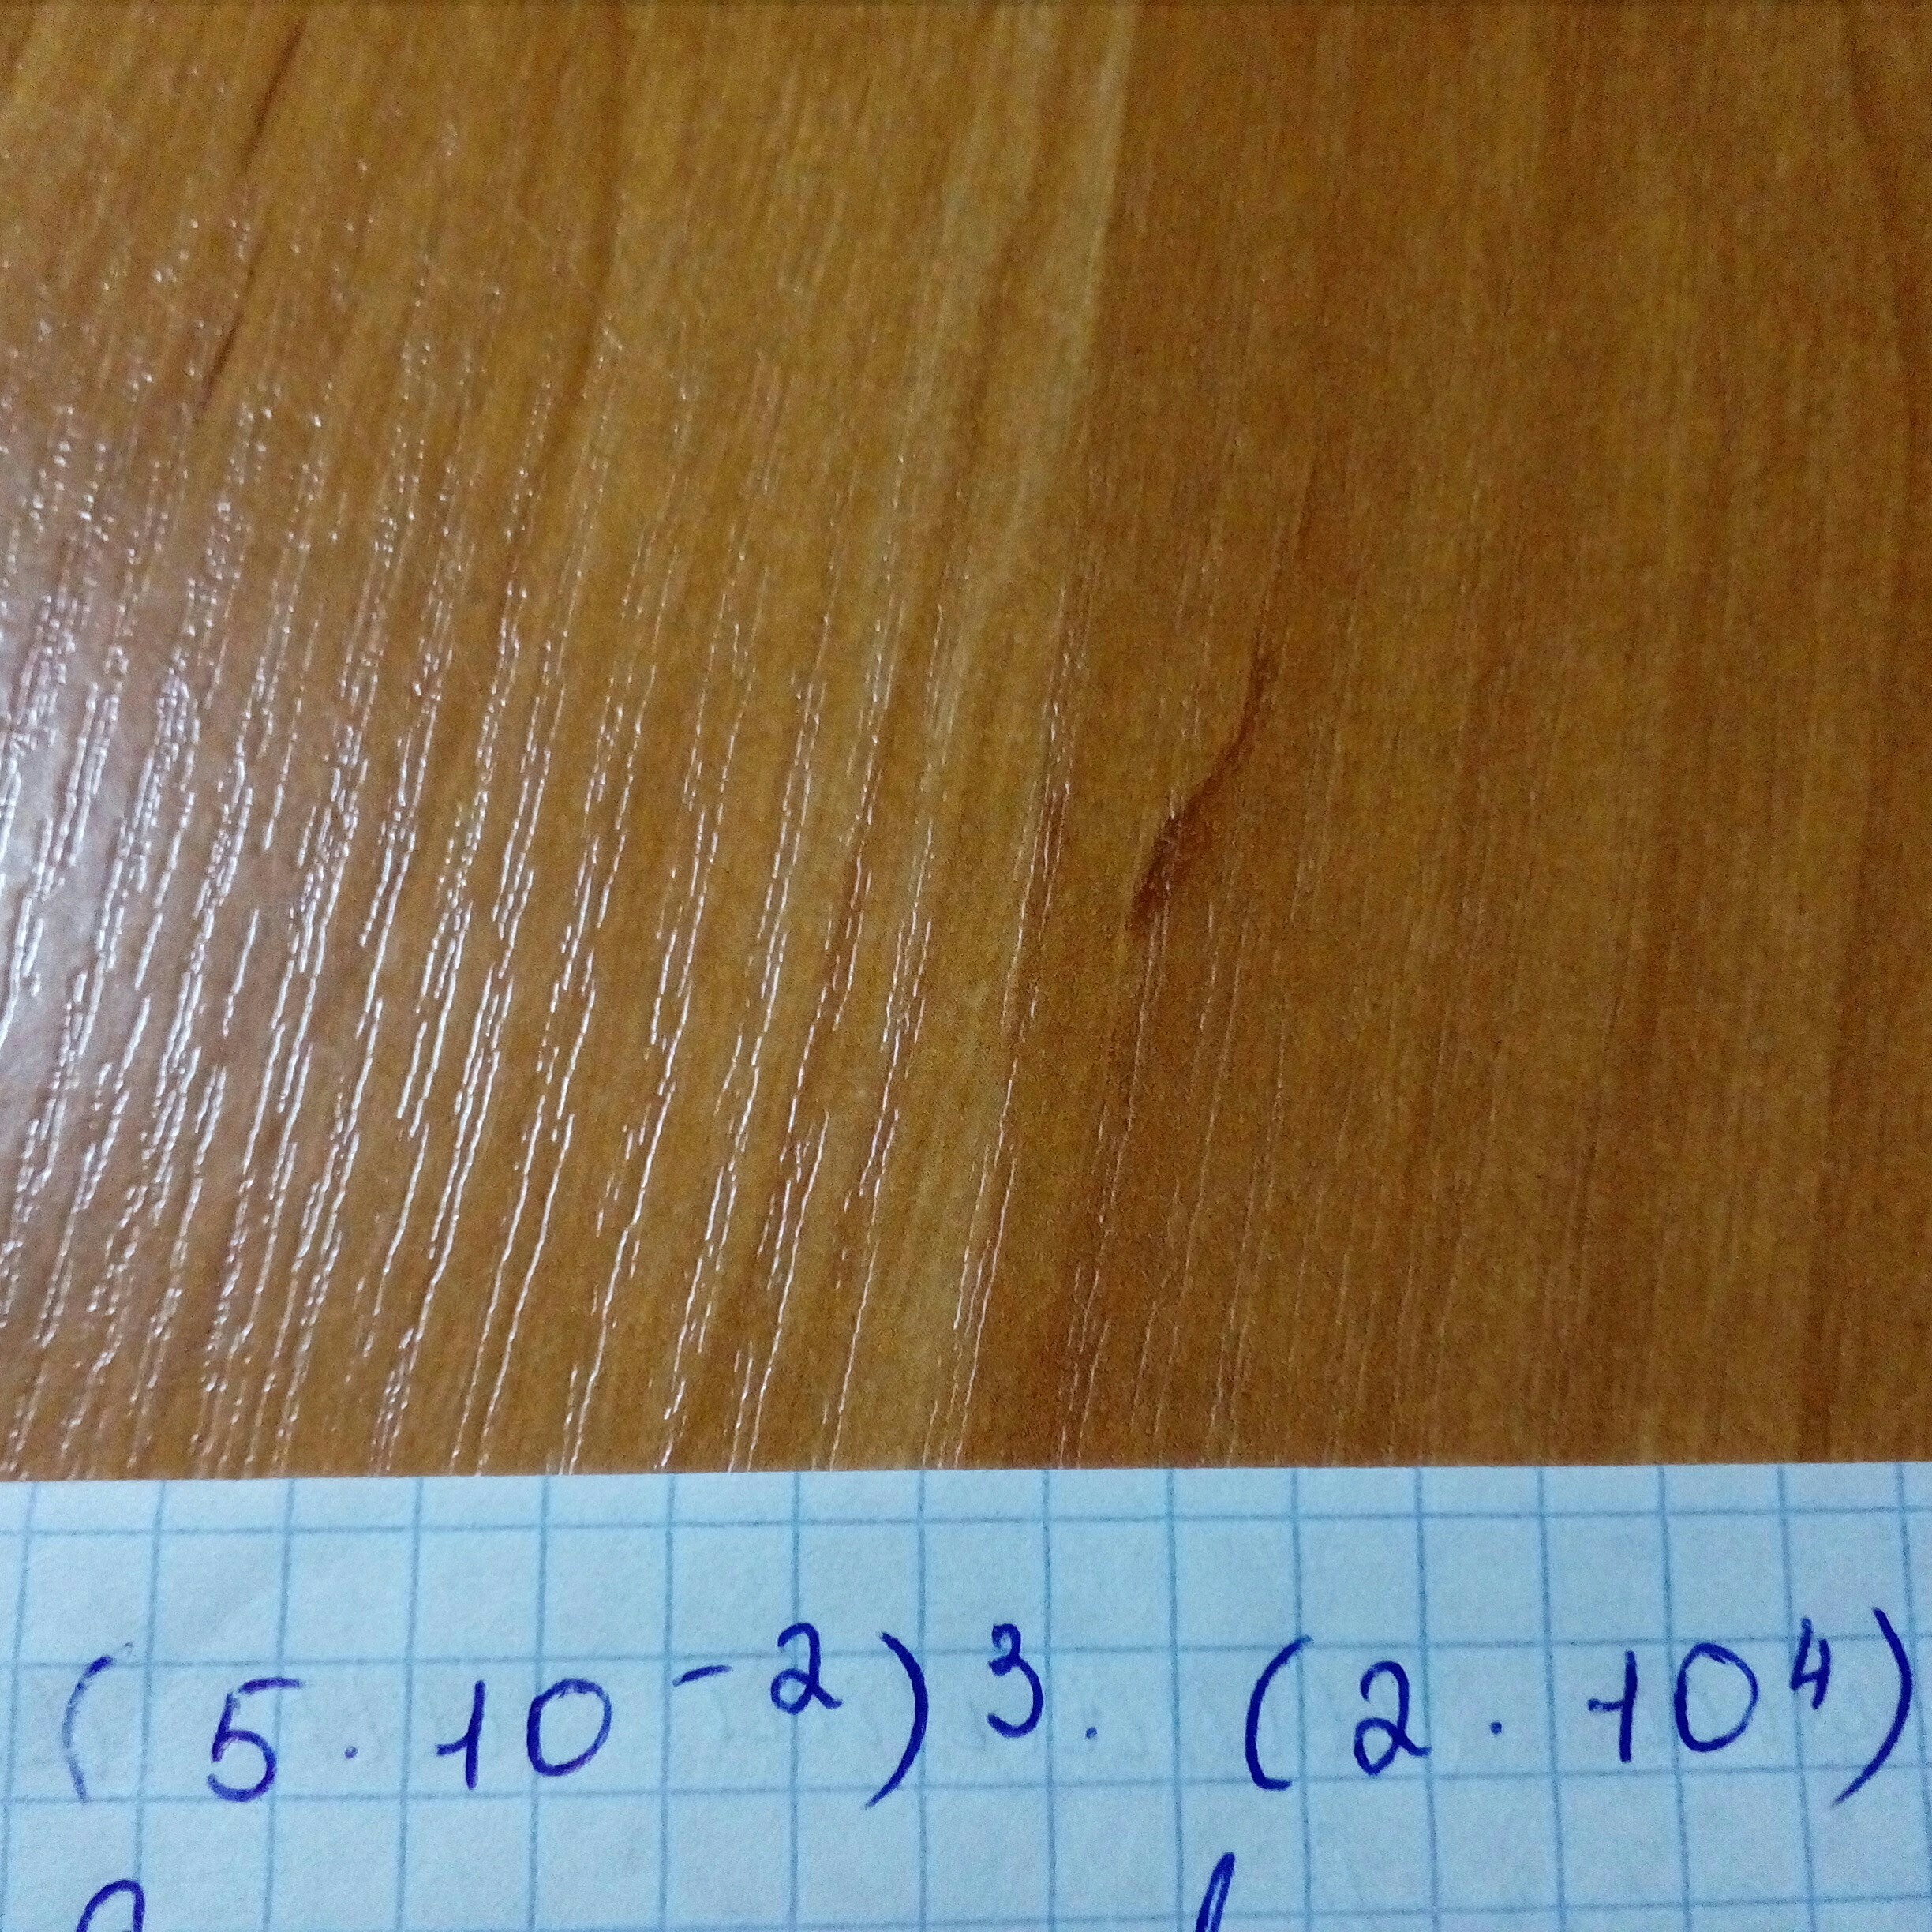 (5 · 10⁻²)³ · (2 · 10⁴)